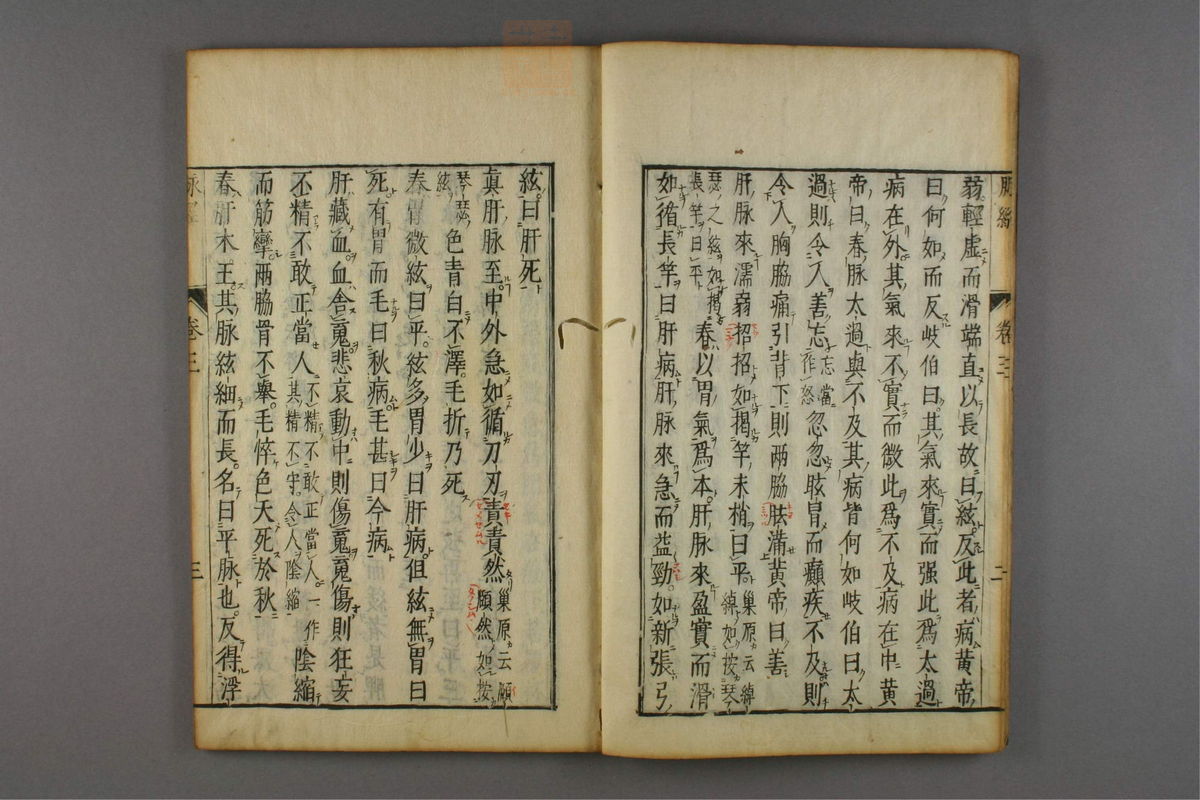 脉經 卷三 二
弱輕虚而滑端直以長故曰絃反此者病黄帝
曰何如而反歧伯曰其氣來實而强此爲太過
病在外其氣來不實而微此爲不及病在中黄
帝曰春脉太過與不及其病皆何如歧伯曰太
過則令人善忘忘當作怒忽忽眩冒而癲疾不及則
令人胸脇痛引背下則兩脇胠滿黄帝曰善
肝脉來濡弱招招如揭竿末梢曰平巢原云綽綽如按琴
瑟之絃如揭長竿曰平春以胃氣爲本肝脉來盈實而滑
如循長竿曰肝病肝脉來急而益勁如新張弓
絃曰肝死
真肝脉至中外急如循刀刃責責然巢原云賾賾然如按
琴瑟絃色青白不澤毛折乃死
春胃微絃曰平絃多胃少曰肝病但絃無胃曰
死有胃而毛曰秋病毛甚曰今病
肝藏血血舍䰟悲哀動中則傷䰟䰟傷則狂妄
不精不敢正當人不精不敢正當人一作其精不守令人陰縮陰縮
而筋攣兩脇骨不擧毛悴色夭死於秋
春肝木王其脉絃細而長名曰平脉也反得浮
脉經 卷三 三